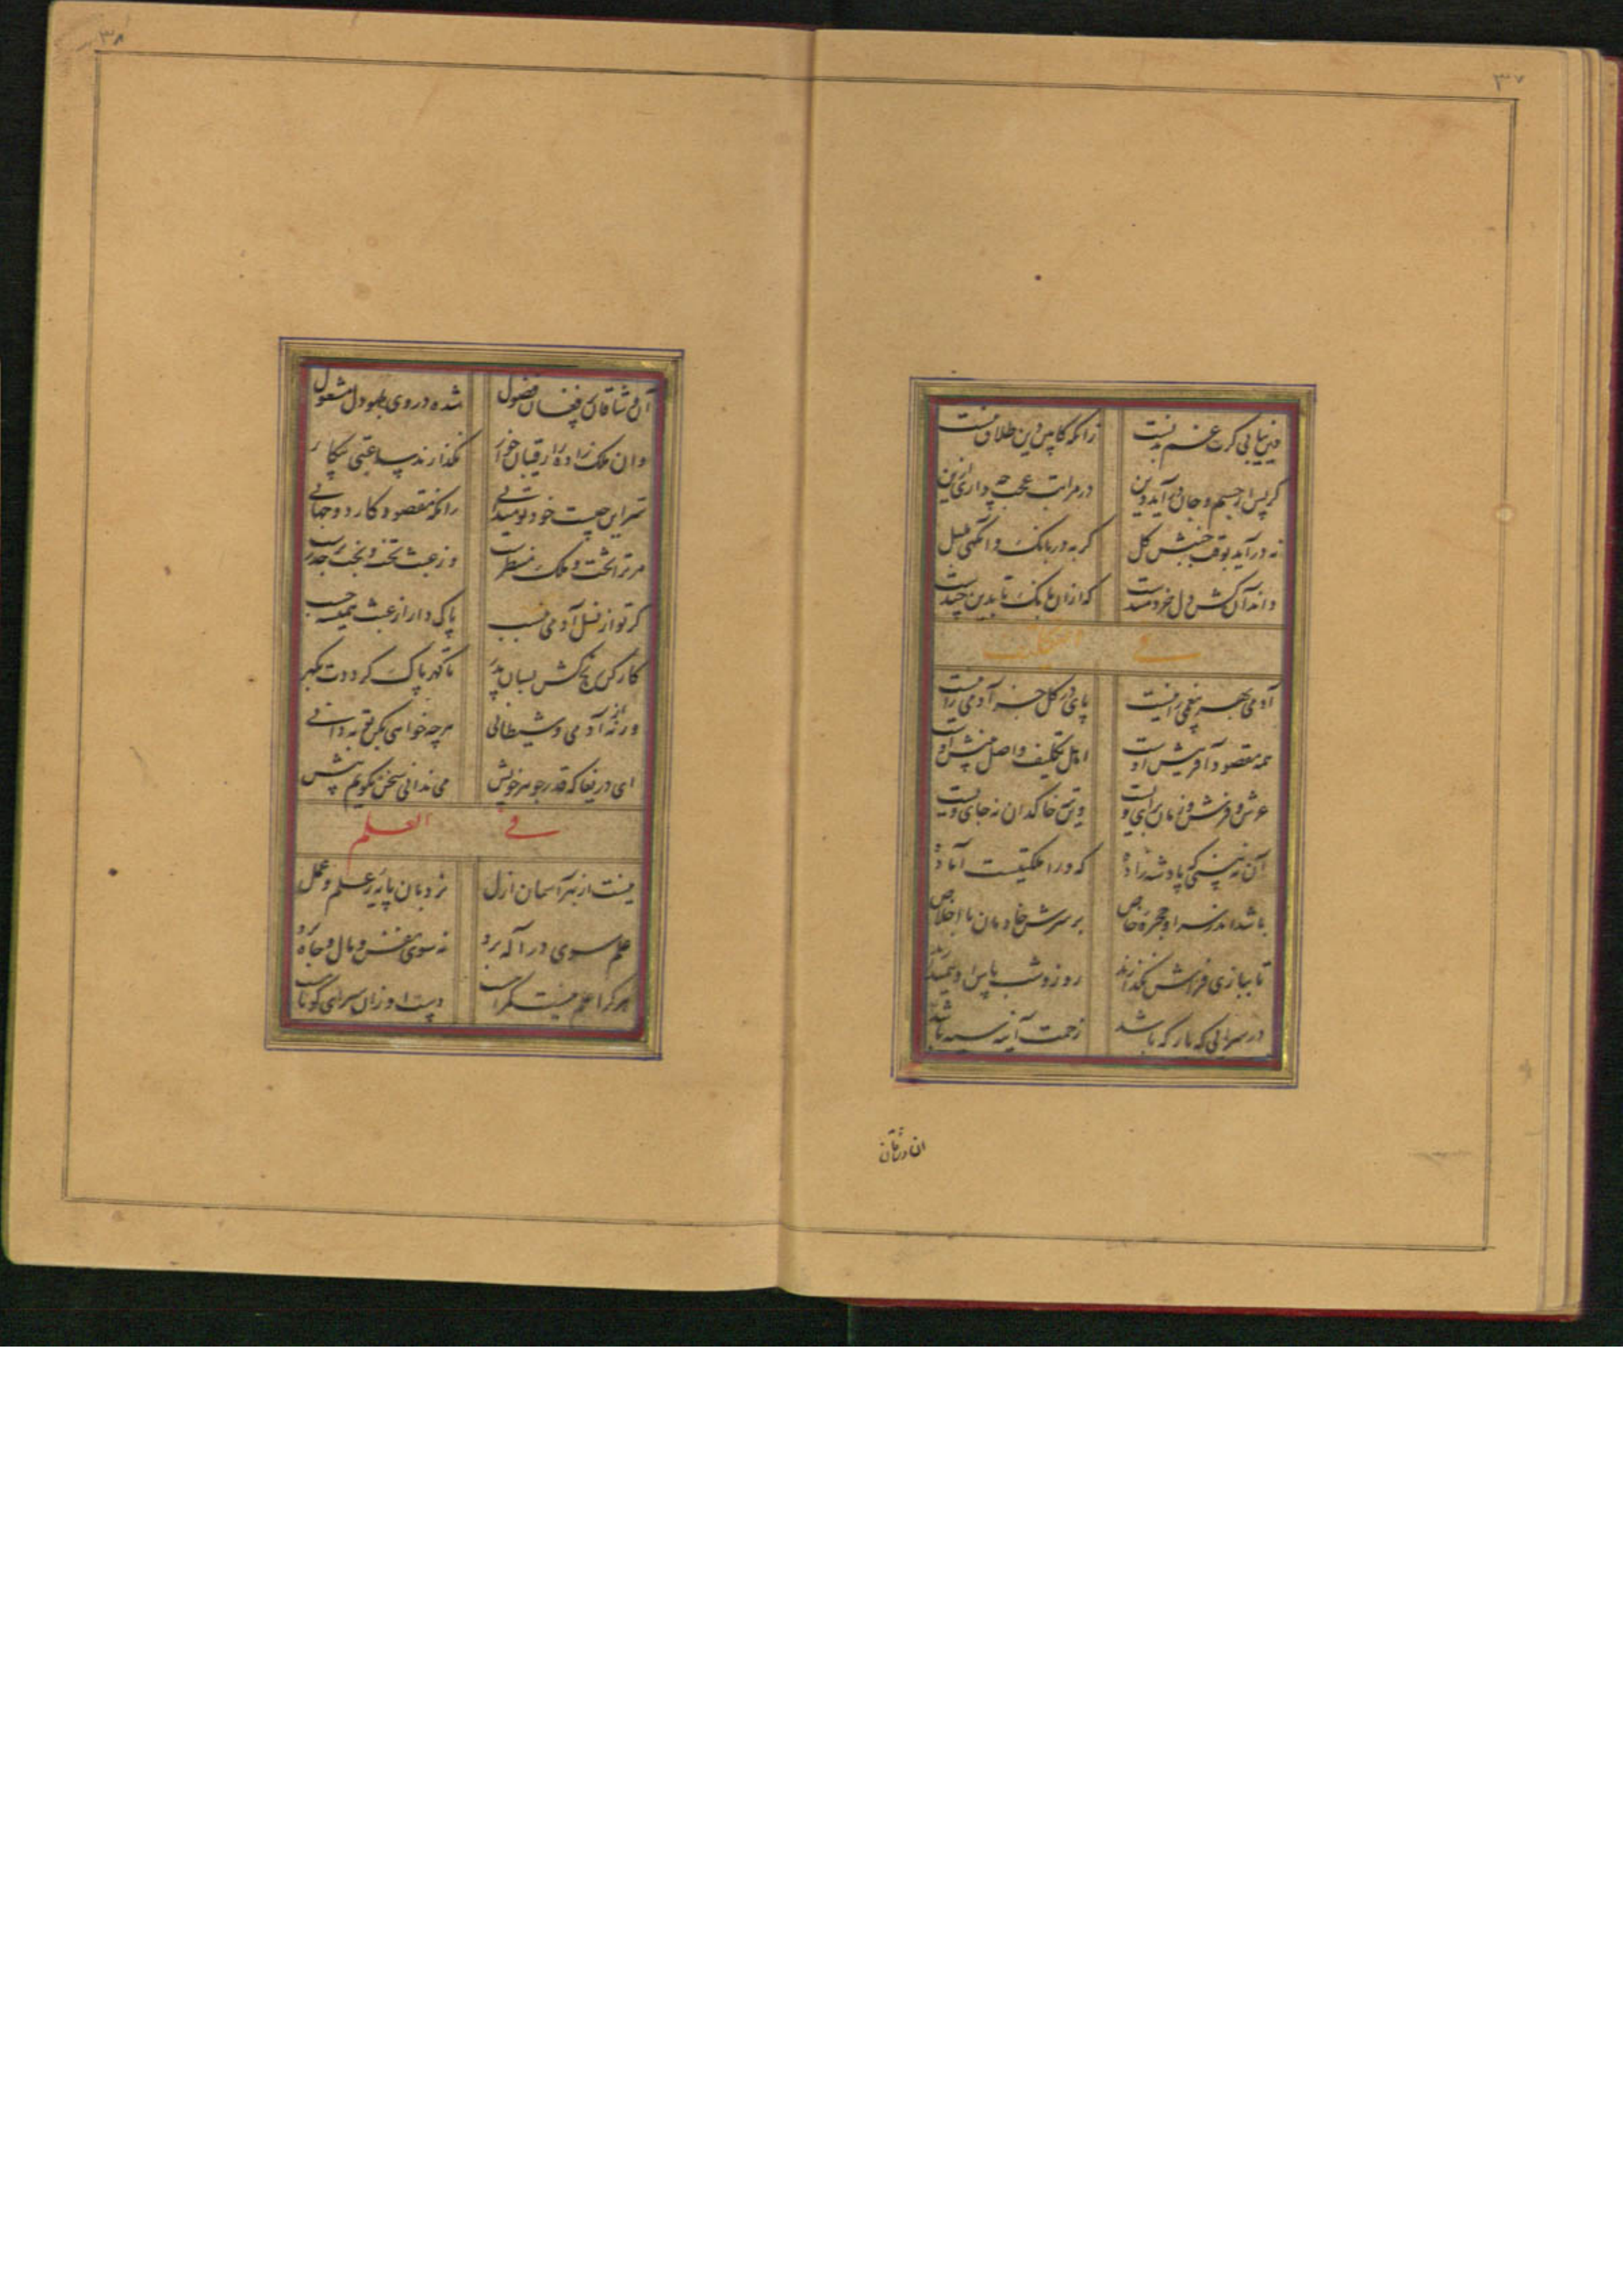 ۳۷
زانکه کابین دین طلاق منست
در مراتب عجب چه داری این
نه درآید بوقت جنبش کل
گربه در بانگ وانگهی بلبل
داند آن کش دل خردمندست
که از آن بانگ تا بدین چندست
فی التکلیف
آدمی بهر بیغمی را نیست
پای در گل جز آدمی را نیست
همه مقصود آفرینش اوست
اهل تکلیف و اصل بینش اوست
عرش و فرش و زمان برای ویست
وین خاکدان نه جای ویست
آن نه بینی که پادشه زاده
که ورا ملکتیست آماده
باشد اندر سرا و حجره خاص
بر سرش خادمان با اخلاص
تا ببازی فراش نگذارند
روز و شب پاس او همیدارند
در سرایی که بارگه باشد
زحمت آینه سیه باشد
۳۸
آن وشاقان فضول
شده در وی بطبع و دل مشغول
وان ملک زاده را رقیبان خوار
نگذارند ساعتی بیکار
سر این چیست خود تو میدانی
زانکه مقصود کار دو جهانی
مر ترا تخت و ملک منتظرست
گر تو از نسل آدمی بنسب
پاک دار از عبث همیشه حسب
کار کن رنج کش بسان پدر
تا گهر پاک گرددت بگهر
ورنه از آدمی و شیطانی
هرچه خواهی بکن تو به دانی
ای دریغا که قدر جوهر خویش
می ندانی سخن نگویم بیش
فی العلم
نیست از بهر آسمان ازل
نردبان پایه ز علم و عمل
علم سوی در اله برد
نه سوی نفس و مال و جاه برد
هر کرا علم نیست گمراهست
دست او زان سرای کوتاهست